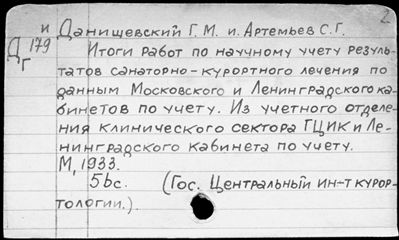 2
и Данишевский Г. М. и. Артемьев С. Г.
Д 179
г
Итоги работ по научному учету резуль-
татов санаторно-курортного лечения по
данным Московского и Ленинградского ка-
бинетов по учету. Из учетного отделе-
ния клинического сектора ГЦИК и Ле-
нинградского кабинета по учету.
М, 1933.
5bc. (Гос. Центральный ин-т курор-
тологии.).